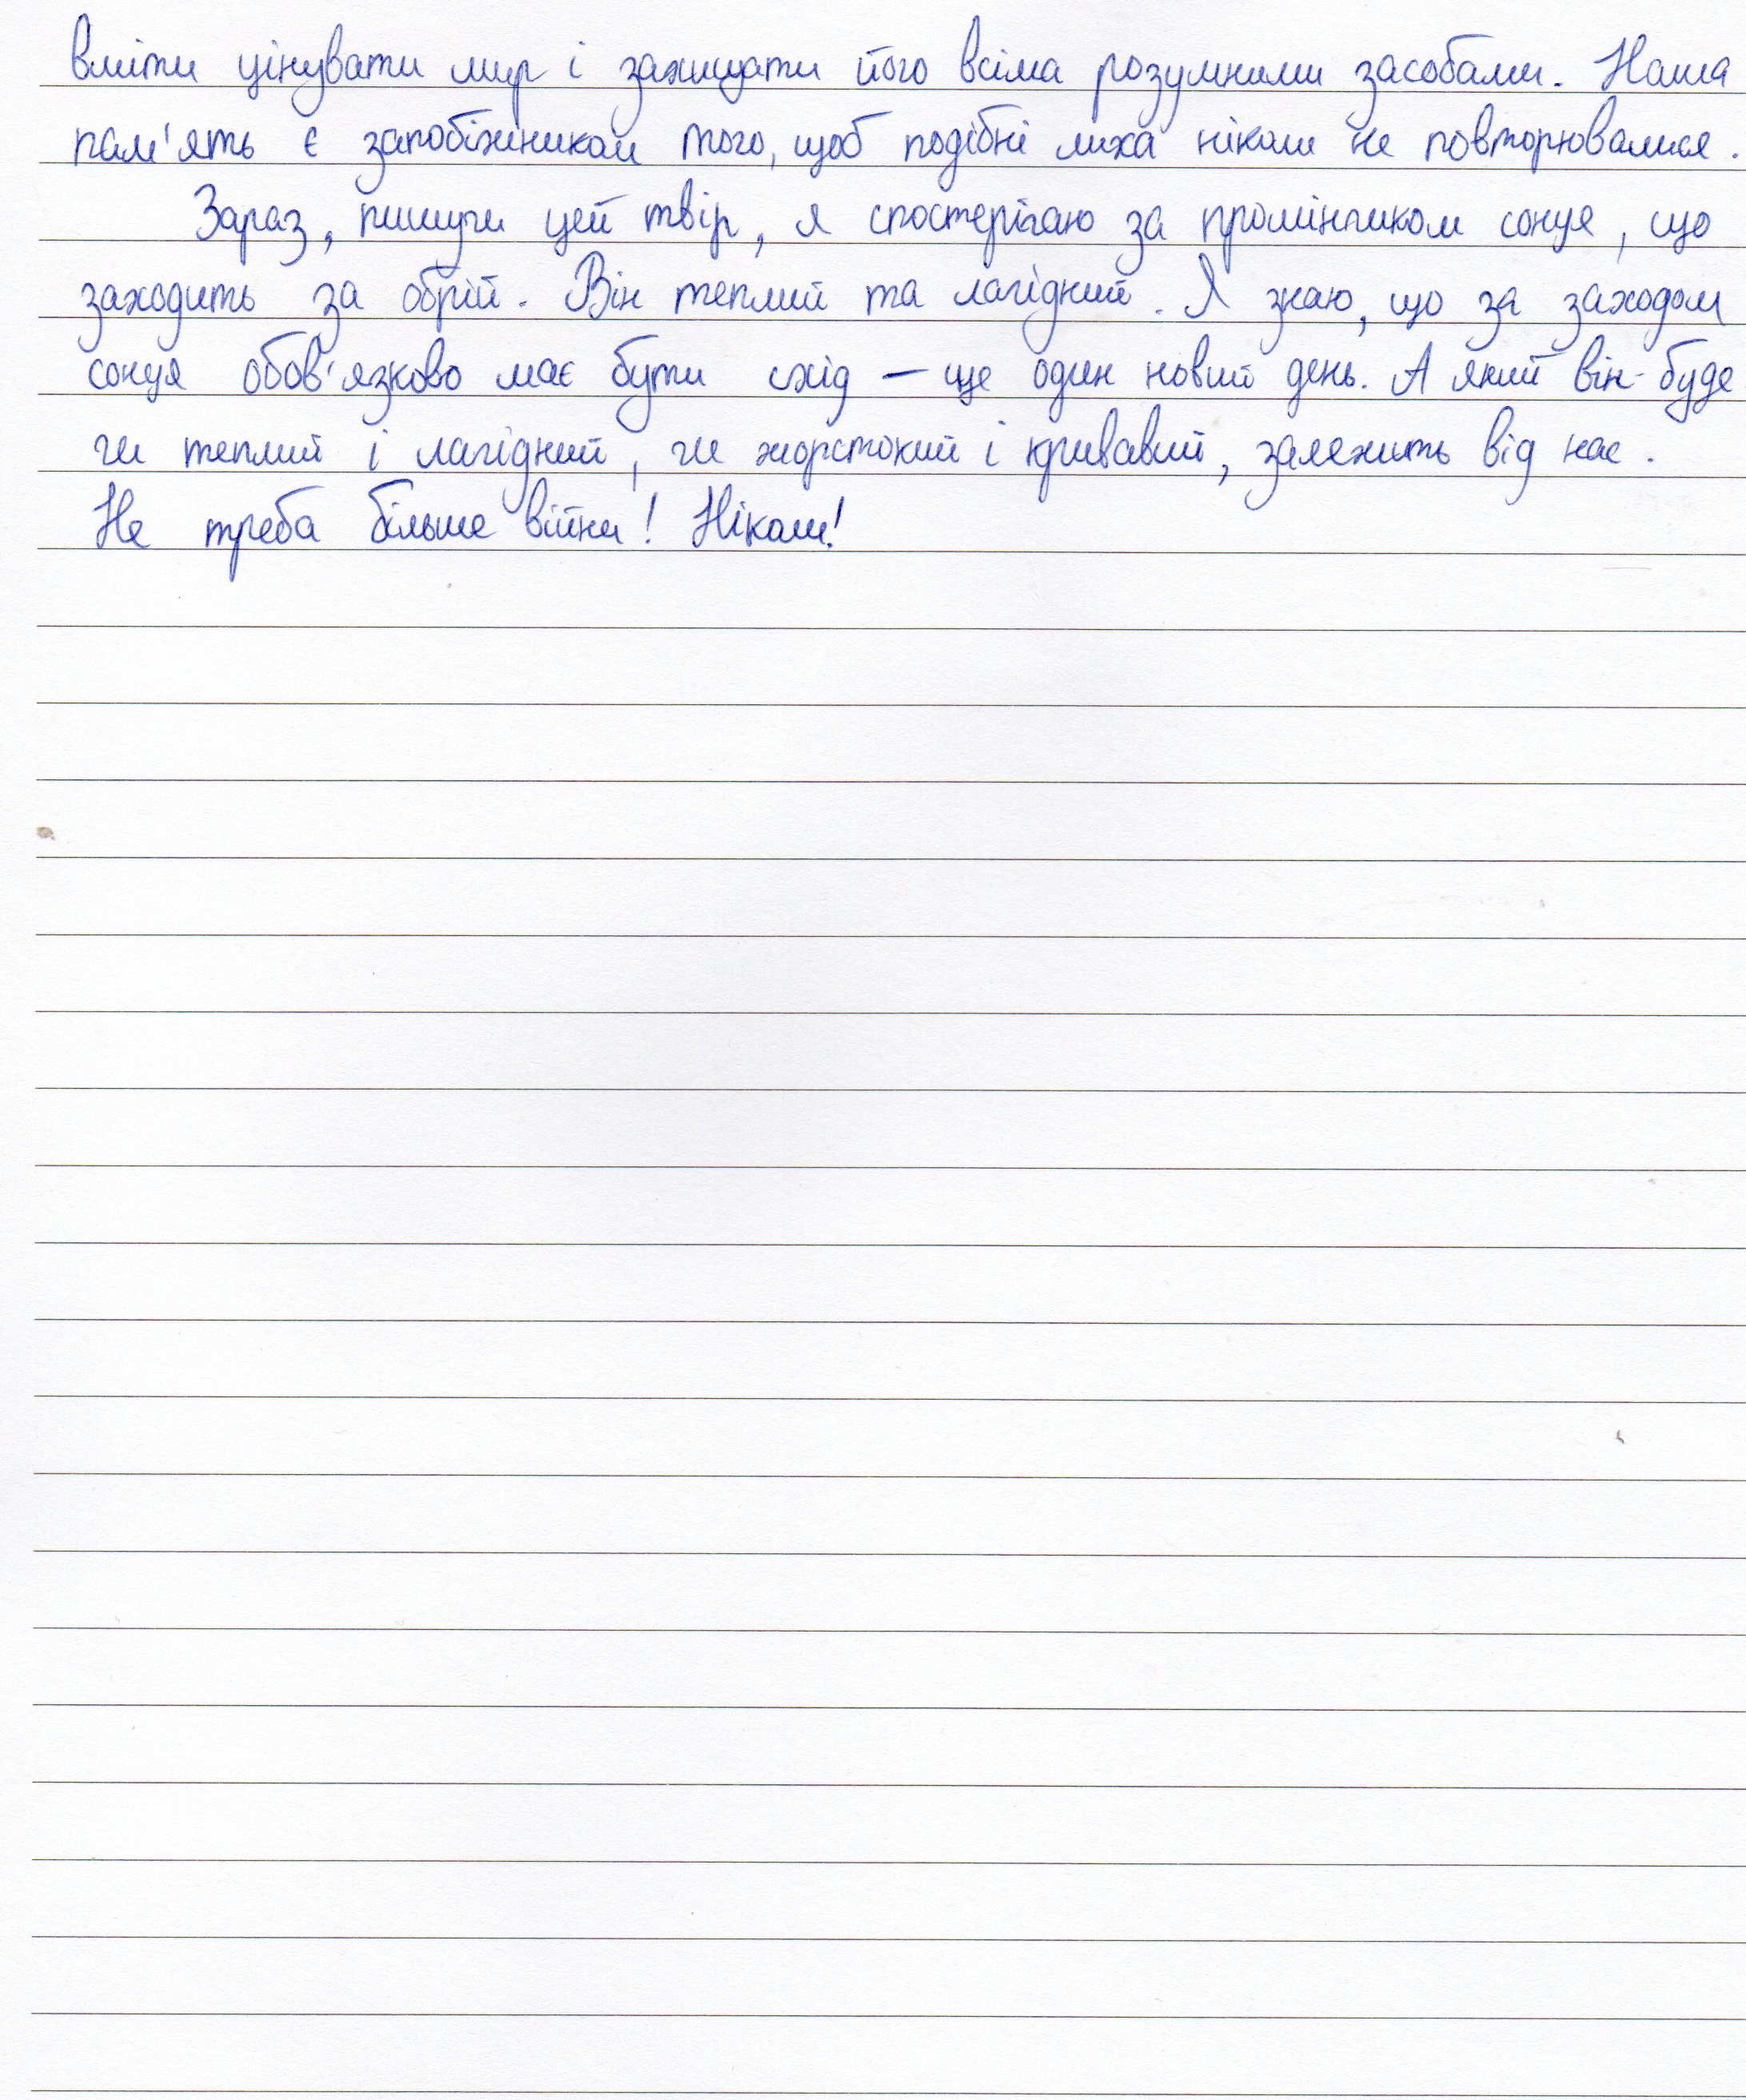 вміти цінувати мир і захищати його всіма розумними засобами. Наша
пам'ять є запобіжником того, щоб подібні лиха ніколи не повторювалися.
Зараз, пишучи цей твір, я спостерігаю за промінчиком сонця, що
заходить за обрій. Він теплий та лагідний. Я знаю, що за заходом
сонця обов'язково має бути схід – ще один новий день. А який він буде
чи теплий і лагідний, чи жорстокий і кривавий, залежить від нас.
Не треба більше війни! Ніколи!